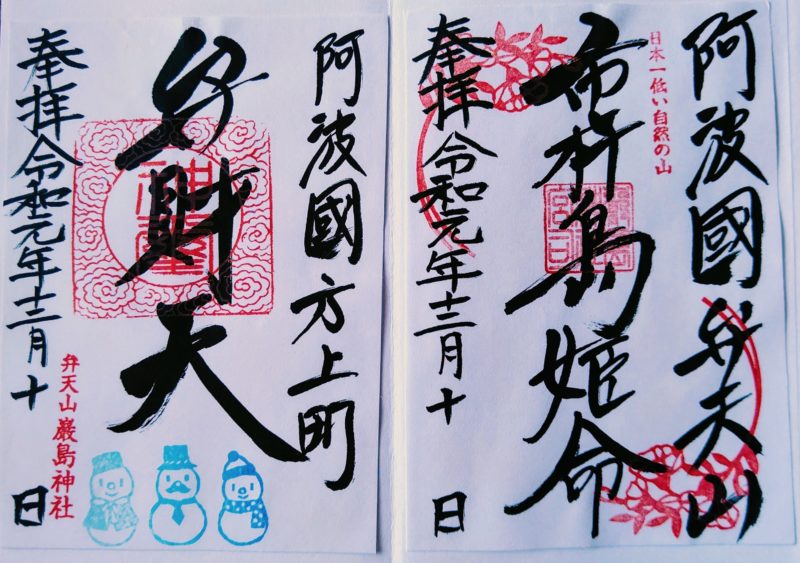 阿波國弁天山
日本一低い自然の山
市杵島姫命
奉拝令和元年十二月十日
阿波國方上町
弁財天
奉拝令和元年十二月十日
弁天山巖島神社